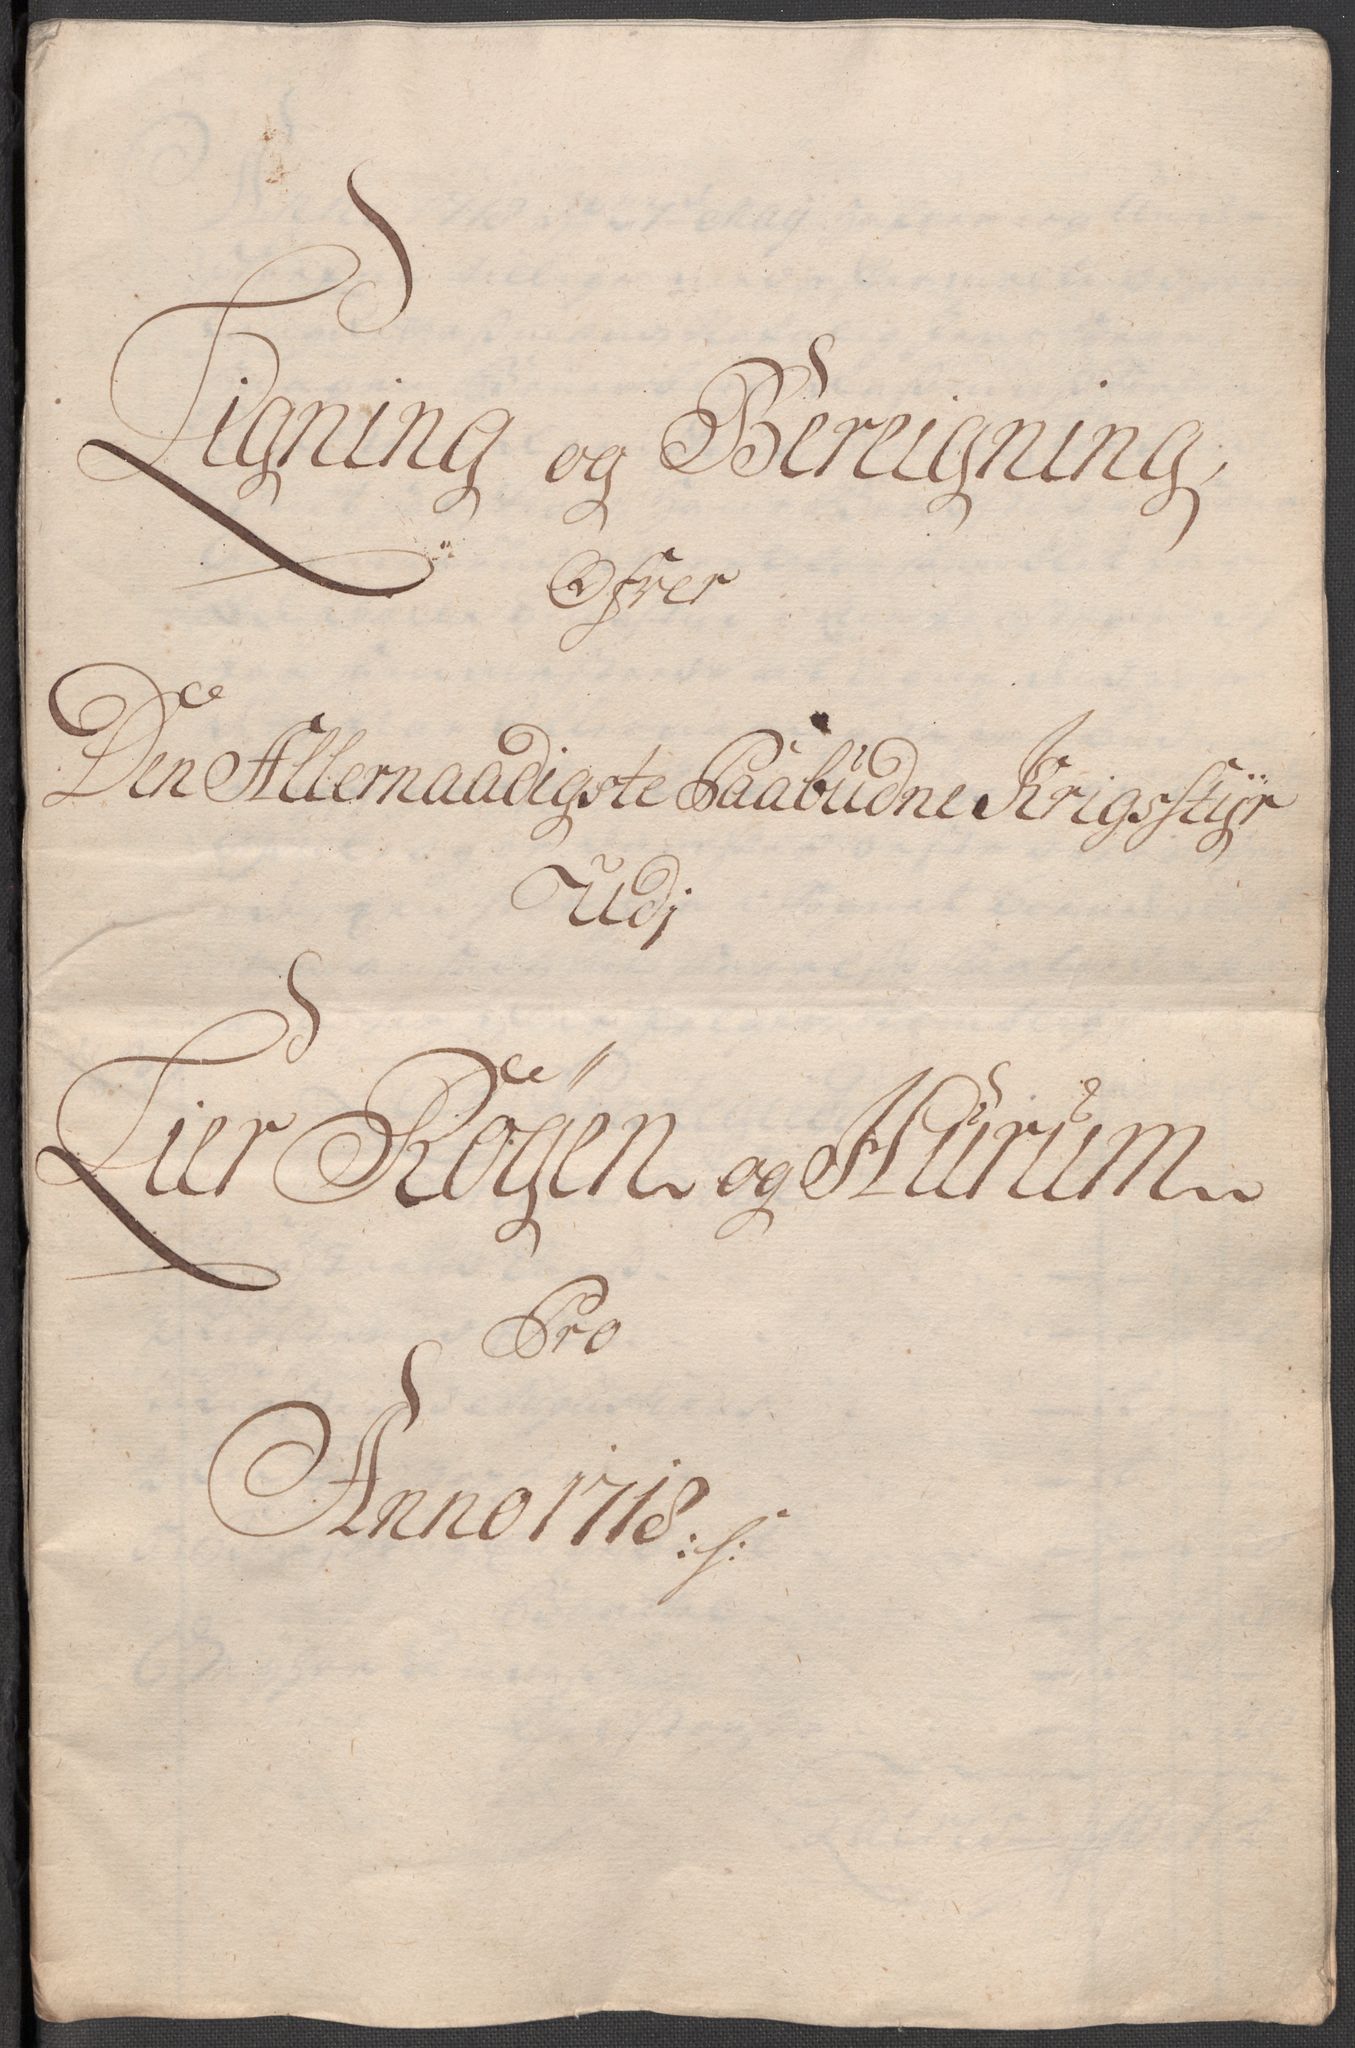 Ligning og Bereigning,
Ofrer
Den Allernaadigste Paabudne Krigsstÿr
Udj
Lier Rógen og Hurum
Pro
Anno 1718 :/: